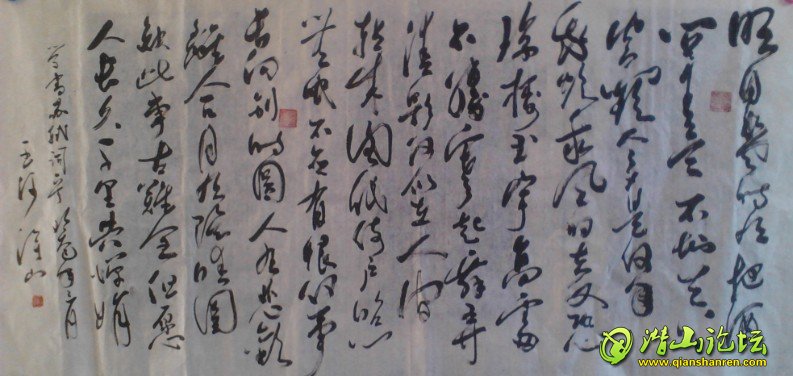 明月几时有把酒
问青天不知天上
宫阙今夕是何年
我欲乘风归去又恐
琼楼玉宇高处
不胜寒起舞弄
清影何似在人间
转朱阁低绮户照
无眠不应有恨何事
长向别时圆人有悲欢
离合月有阴晴圆
缺此事古难全但愿
人长久千里共婵娟
苏轼词
潜山论坛
www.qianshanren.com